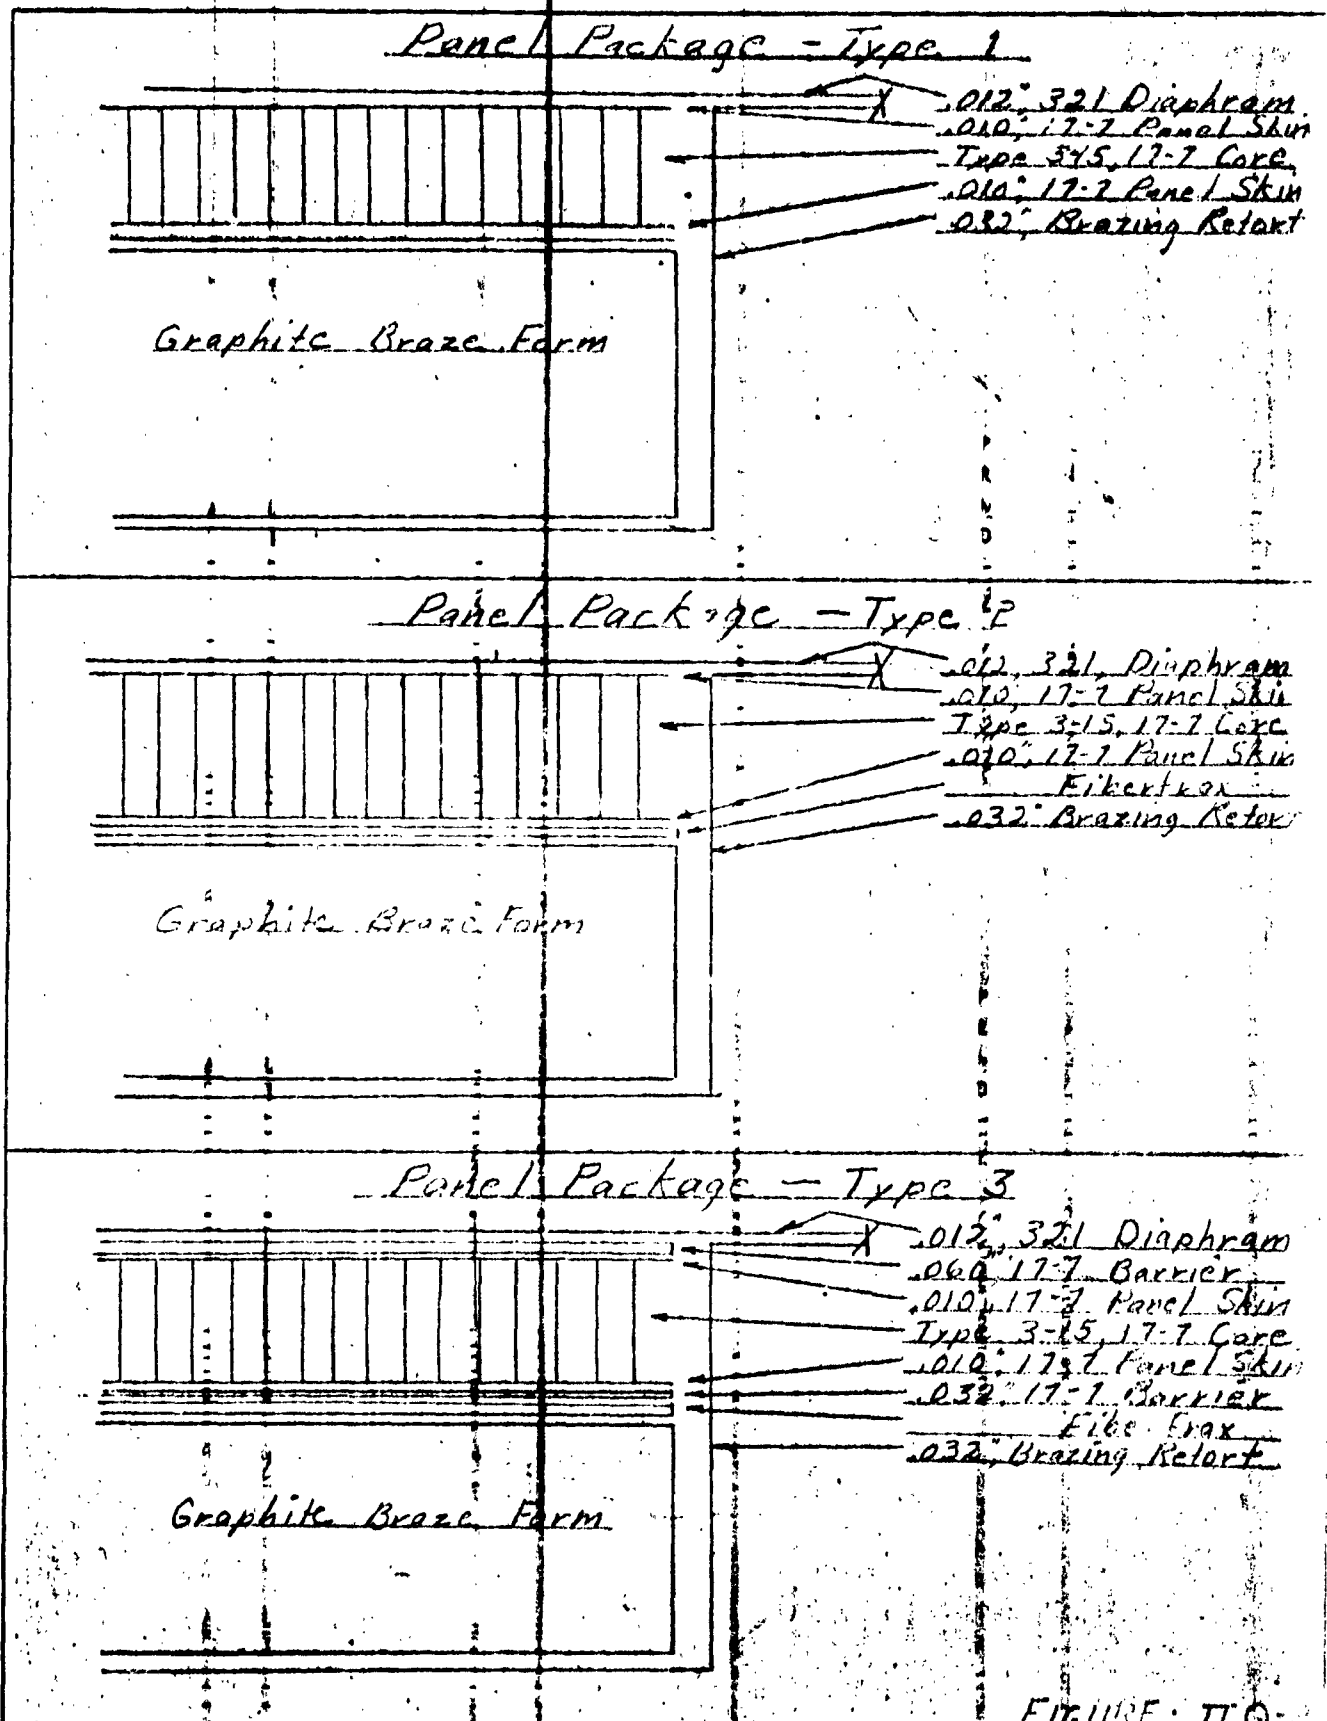 Panel Package - Type 1
.012", 321 Diaphram
.010", 17-7 Panel Skin
Type 3-15, 17-7 Core
.010", 17-7 Panel Skin
.032", Brazing Retort
Graphite Braze Form
Panel Package - Type 2
.012, 321, Diaphram
.010, 17-7 Panel Skin
Type 3-15, 17-7 Core
.010", 17-7 Panel Skin
Fiberfrax
.032" Brazing Retort
Graphite Braze Form
Panel Package - Type 3
.012", 321 Diaphram
.060", 17-7 Barrier
.010", 17-7 Panel Skin
Type 3-15, 17-7 Core
.010", 17-7 Panel Skin
.032", 17-7 Barrier
Fibe Frax
.032", Brazing Retort
Graphite Braze Form
FIGURE